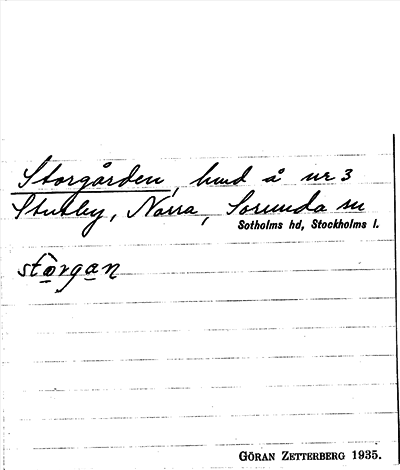 Storgården, hmd å nr 3
Stutby, Norra, Sorunda sn
Sotholms hd, Stockholms l.
stòrgan
GÖRAN ZETTERBERG 1935.